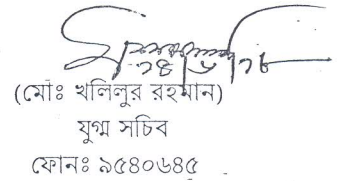 (মোঃ খলিলুর রহমান)
যুগ্ম সচিব
ফোনঃ ৯৫৪০৬৪৫